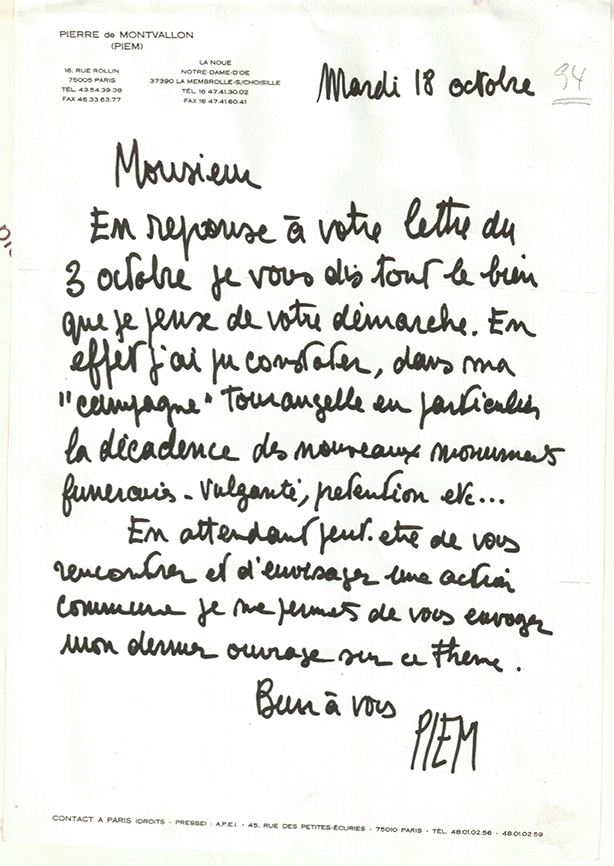 PIERRE de MONTVALLON
(PIEM)
16, RUE ROLLIN
75005 PARIS
TÉL. 43.54.39.38
FAX 46.33.63.77
LA NOUE
NOTRE-DAME-D'OE
37390 LA MEMBROLLE-S/CHOISILLE
TÉL. 16 47.41.30.02
FAX 16 47.41.60.41
Mardi 18 octobre 94
Monsieur
En reponse à votre lettre du
3 octobre je vous dis tout le bien
que je peux de votre démarche. En
effet j'ai pu constater, dans ma
"campagne" tourangelle en particulier
la décadence des nouveaux monuments
funerairs - vulgarité, pretention etc...
En attendant peut-etre de vous
rencontrer et d'envisager une action
commune je me permets de vous envoyer
mon dernier ouvrage sur ce theme.
Bien à vous
PIEM
CONTACT A PARIS (DROITS - PRESSE) : A.P.E.I. - 45, RUE DES PETITES-ÉCURIES - 75010 PARIS - TÉL. 48.01.02.56 - 48.01.02.59